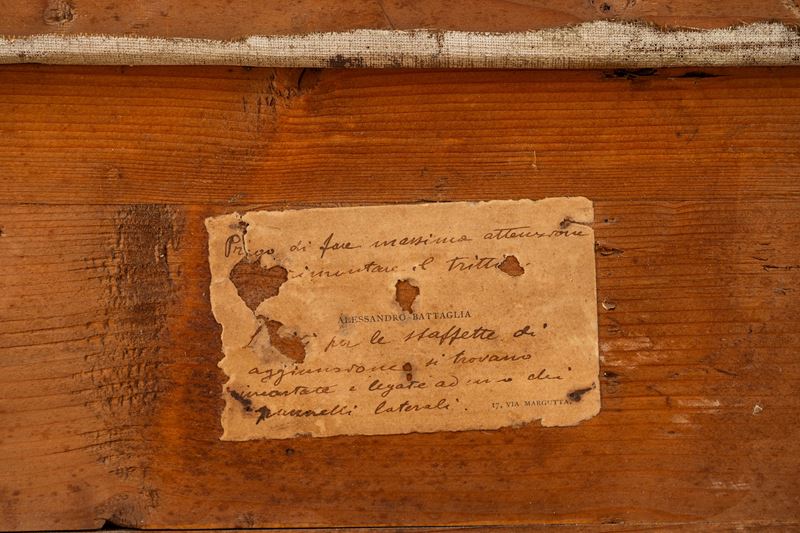 Prego di fare massima attenzione
rimontare il tritti
ALESSANDRO BATTAGLIA
per le staffette di
aggiunzione si trovano
incartate e legate ad uno dei
pannelli laterali.
17, VIA MARGUTTA.